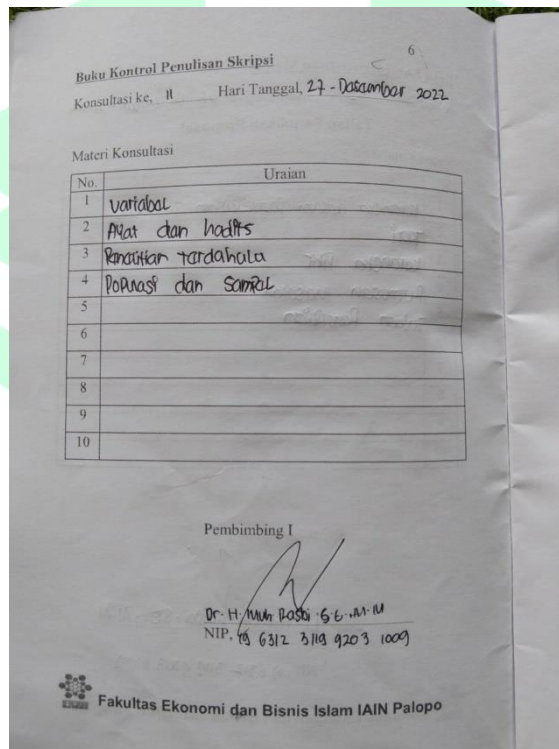 6
Buku Kontrol Penulisan Skripsi
Konsultasi ke, 11 Hari Tanggal, 27 - Desember 2022
Materi Konsultasi
No. Uraian
1 Variabel
2 Ayat dan hadits
3 Penelitian terdahulu
4 Populasi dan Sampel
5
6
7
8
9
10
Pembimbing I
Dr. H. Muh Rasbi S.E., M.M
NIP, 19 6312 3119 9203 1009
Fakultas Ekonomi dan Bisnis Islam IAIN Palopo